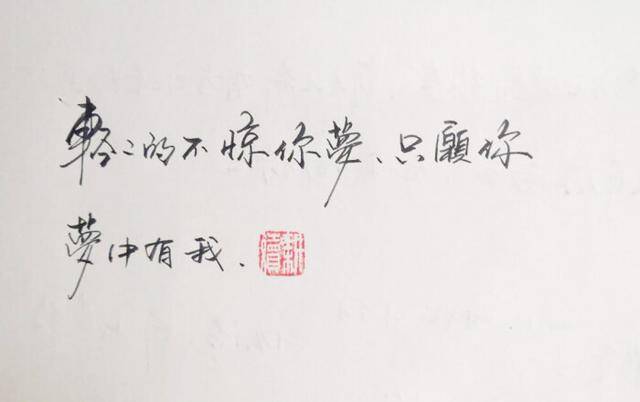 輕々的不惊你夢、只願你
夢中有我.